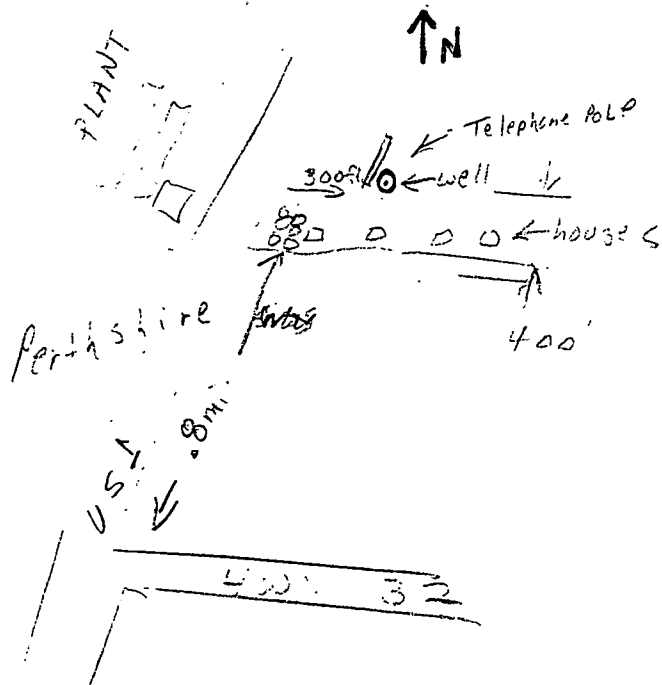 N
PLANT
Telephone Pole
300ft
well
houses
400'
Perthshire
.8 mi.
US 1
32